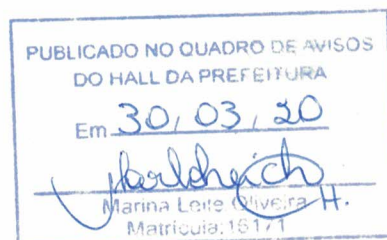 PUBLICADO NO QUADRO DE AVISOS
DO HALL DA PREFEITURA
Em 30, 03, 20
Marina Leite Oliveira H.
Matrícula: 1617/1